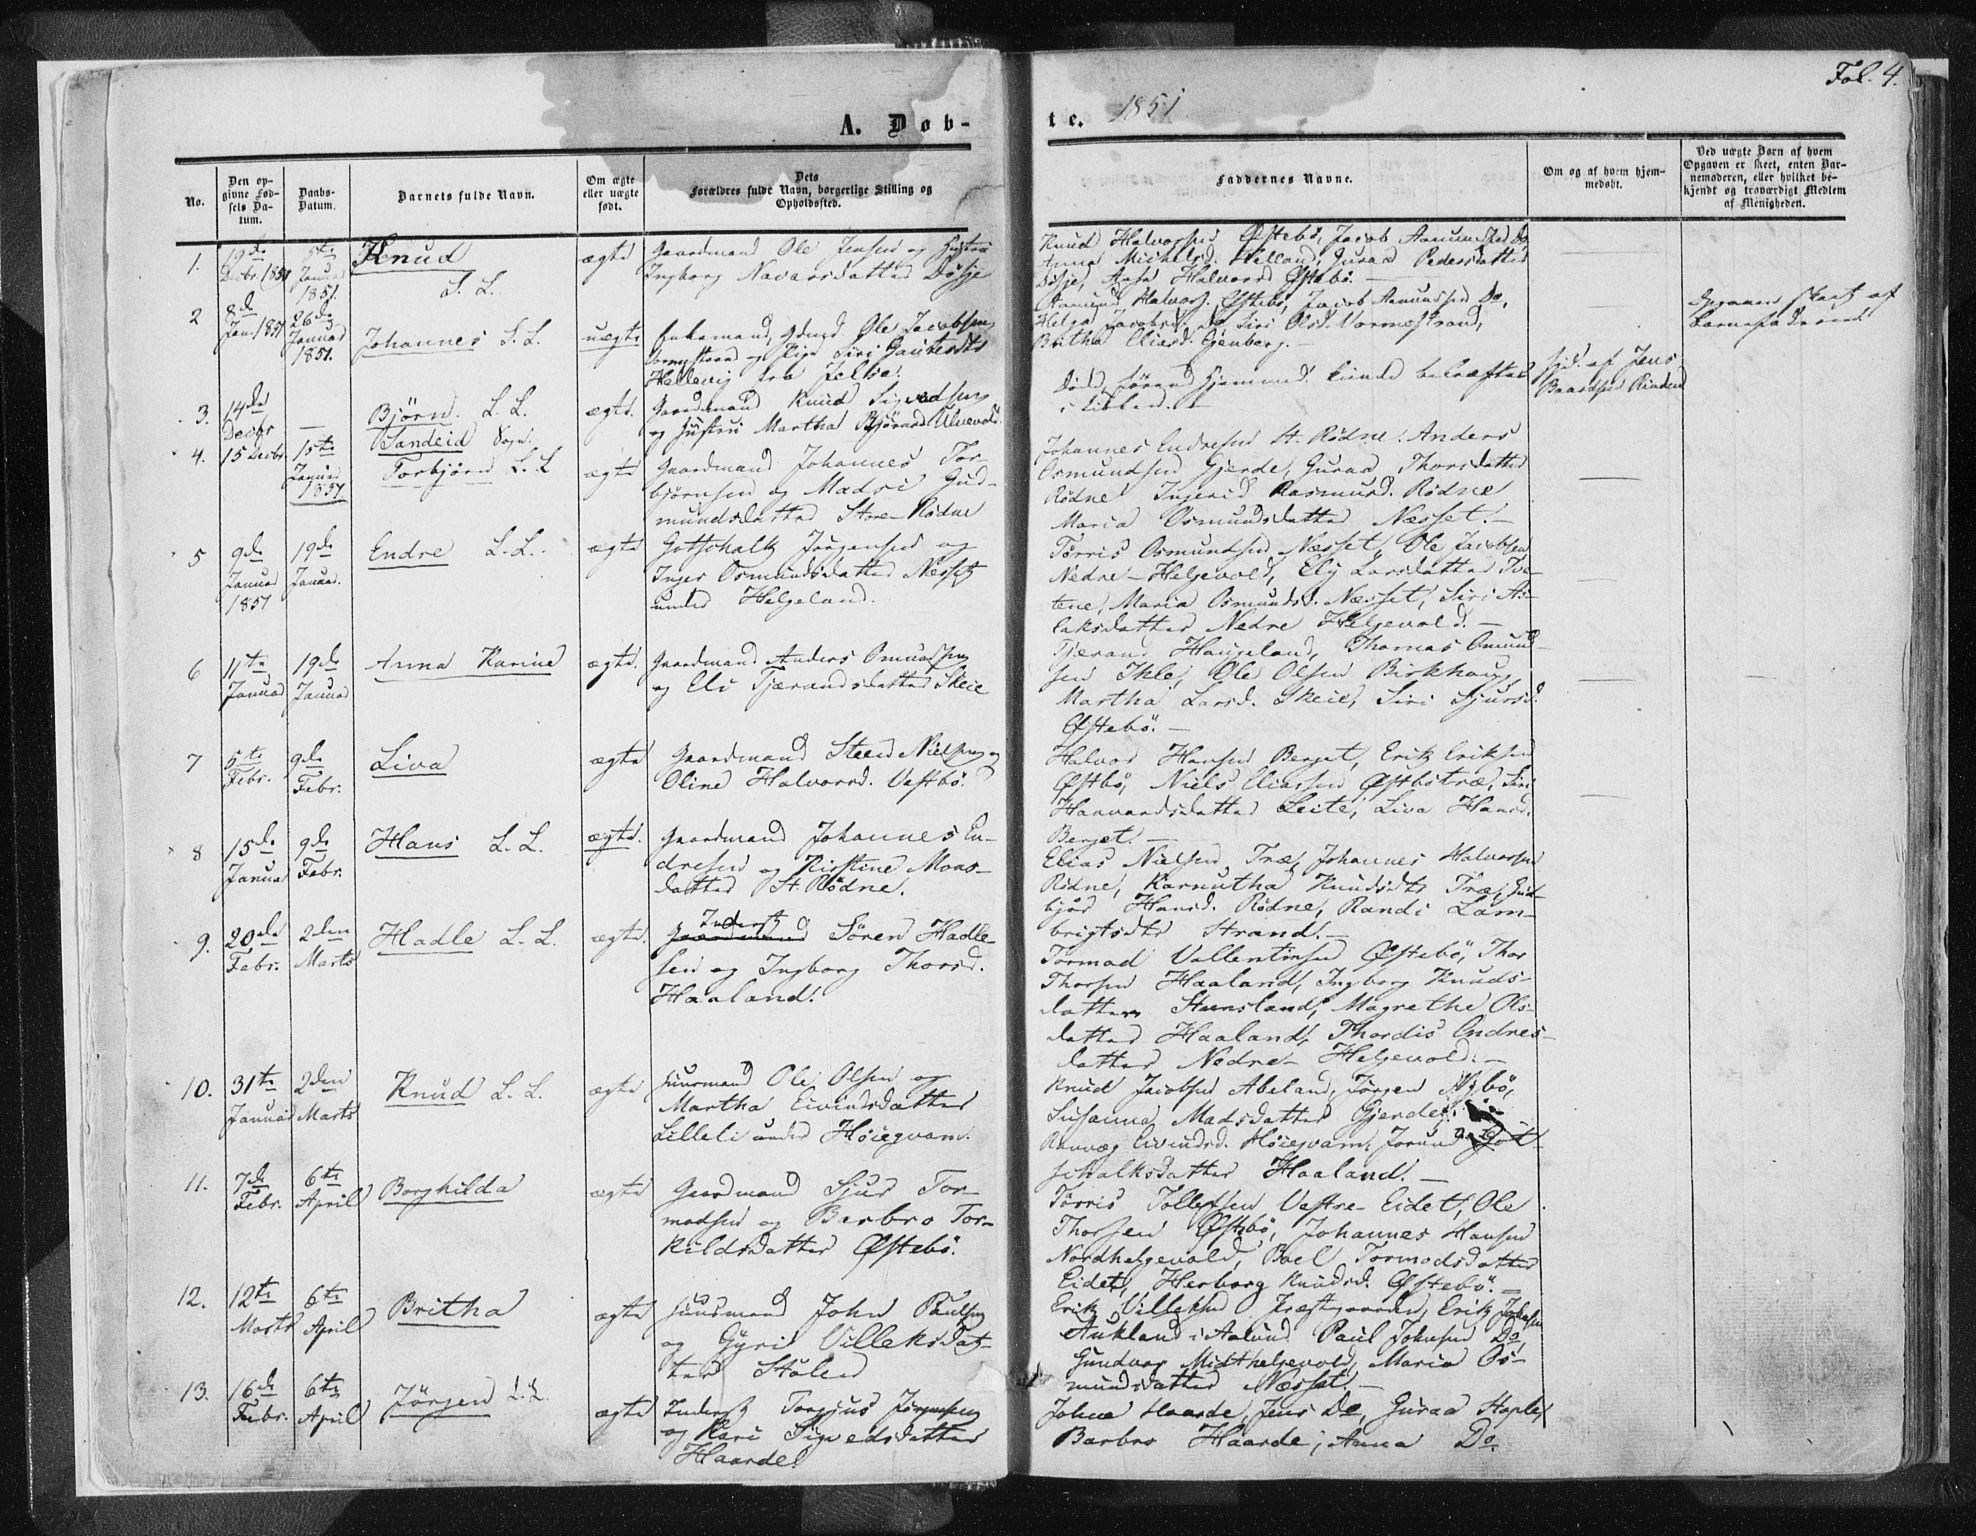 Fol. 4.
A. Døb-
te. 1851
No.
Den op-
givne Fød-
sels Da-
tum.
Daabs-
Datum.
Barnets fulde Navn.
Om ægte
eller uægte
født.
Dets
Forældres fulde Navn, borgerlige Stilling og
Opholdssted.
Faddernes Navne.
Om og af hvem hjem-
medøbt.
Ved uægte Børn af hvem
Opgaven er skeet, enten Bar-
nemoderen, eller hvilket be-
kjendt og troværdigt Medlem
af Menigheden.
1.
19de
Decbr. 1850
5te
Januar
1851.
Knud
L. L.
ægte
Gaardmand Ole Jensen og Hustru
Ingborg Navarsdatter Døsje
Knud Halvorsen Østebö, Jacob Aanundsen Do,
Anna Michelsd. Helland, Guraa Pedersdatter
Døsje, Aasa Halvorsd Østebö. —
2
8de
Jan. 1851
26de
Januar
1851.
Johannes L. L.
uægte
Enkemand, Ole Jacobsen
og Pige Siri Gautesdtr
Hellevig fra Jelse.
Aamund Halvors. Østebö, Jacob Aamundsen Do,
Helga Jacobsd. Do, Siri Olsd. Vormestrand,
Britha Eliasd. Egenberg. —
Opgaven skeet af
Barnefaderen
3.
14de
Decbr
—
Bjørn. L. L.
ægte.
Gaardmand Knud Sigvedsen
og Hustru Martha Bjørnsd Ulvevold.
Døde, førend Hjemmed. kunde bekræftes
i Kirken. —
Hjd. af Jens
Baardsen Rinden
Sandeid Sogn.
4.
15 Decbr.
15te
Januar
1851
Torbjørn L. L
ægte
Gaardmand Johannes Tor-
bjørnsen og Madsi Gud-
mundsdatter Store-Rödne
Johannes Endresen St. Rödne, Anders
Osmundsen Gjerde, Guraa Thorsdatter
Rödne, Ingerid Rasmusd. Rödne
Maria Osmundsdatter Næsset. —
5
9de
Januar
1851
19de
Januar.
Endre L. L.
ægte
Gotschalk Jörgensen og
Inger Osmundsdatter Næsset
under Helgeland.
Tørris Osmundsen Næsset, Ole Jacobsen
Nedre-Helgevold, Ely Larsdatter Tve-
tene, Maria Osmundsd. Næsset, Siri As-
laksdatter Nedre Helgevold. —
6
11te
Januar
19de
Januar
Anna Karine
ægte.
Gaardmand Anders Omundsen
og Eli Tjærandsdatter Skeie
Tjærand Haugeland, Thomas Omund-
sen Ikle, Ole Olsen Birkhaug,
Martha Larsd. Skeie, Siri Sjursd.
Østebö. —
7
5te
Febr.
9de
Febr.
Liva
ægte
Gaardmand Steen Nielsen og
Oline Halvorsd. Vestbö.
Halvor Hansen Berget, Erik Eriksen
Østbö, Niels Eliassen Østbötræ, Siri
Haavardsdatter Leite, Liva Hansd.
Berget. —
8
15de
Januar
9de
Febr.
Hans L. L.
ægte.
Gaardmand Johannes En-
dresen og Kirstine Mons-
datter St. Rödne.
Elias Nielsen Træ, Johannes Halvorsen
Rödne, Karnutha Knudsdtr Træ, Gud-
björ Hansd. Rödne, Randi Lam-
brigtsdtr Strand. —
9.
20de
Febr.
2den
Marts
Hadle L. L.
ægte.
Inderst
Gaardmand Sören Hadle-
sen og Ingborg Thorsd.
Haaland.
Tormod Vallentinsen Østebö, Thor
Thorsen Haaland, Ingborg Knuds-
datter Stensland, Magrethe Ols-
datter Haaland, Thordis Endres-
datter Nedre-Helgevold. —
10.
31te
Januar
2den
Marts
Knud L. L.
ægte
Huusmand Ole Olsen og
Martha Eivindsdatter
Lilleli under Høiegvam.
Knud Jacobsen Abeland, Jørgen Nybö,
Susanna Madsdatter Gjerde,
Rannæg Eivindsd. Høiegvam, Jorund Got-
schalksdatter Haaland. —
11.
7de
Febr.
6te
April
Borghilda
ægte
Gaardmand Sjur Tor-
modsen og Barbro Tor-
kildsdatter Østebö.
Tørris Tollefsen Vestre-Eidet, Ole
Thorsen Østebö, Johannes Hansen
Nordhelgevold, Boel Tormodsdatter
Eidet, Herborg Knudsd. Østebö. —
12.
12te
Marts
6te
April
Britha
ægte
Huusmand John Paulsen
og Gyri Villeksdat-
ter Stølen
Erik Villeksen Præstgaarden, Erik Johnsen
Aukland i Aalund Paul Johnsen Do
Gundvor Midthelgevold, Maria Os-
mundsdatter Næsset. —
13.
16de
Febr.
6te
April
Jörgen L. L.
ægte
Inderst Torgius Jørgensen
og Kari Sigvedsdatter
Haarde.
Johne Haarde, Jens Do, Guraa Hapled
Barbro Haarde, Anna Do.